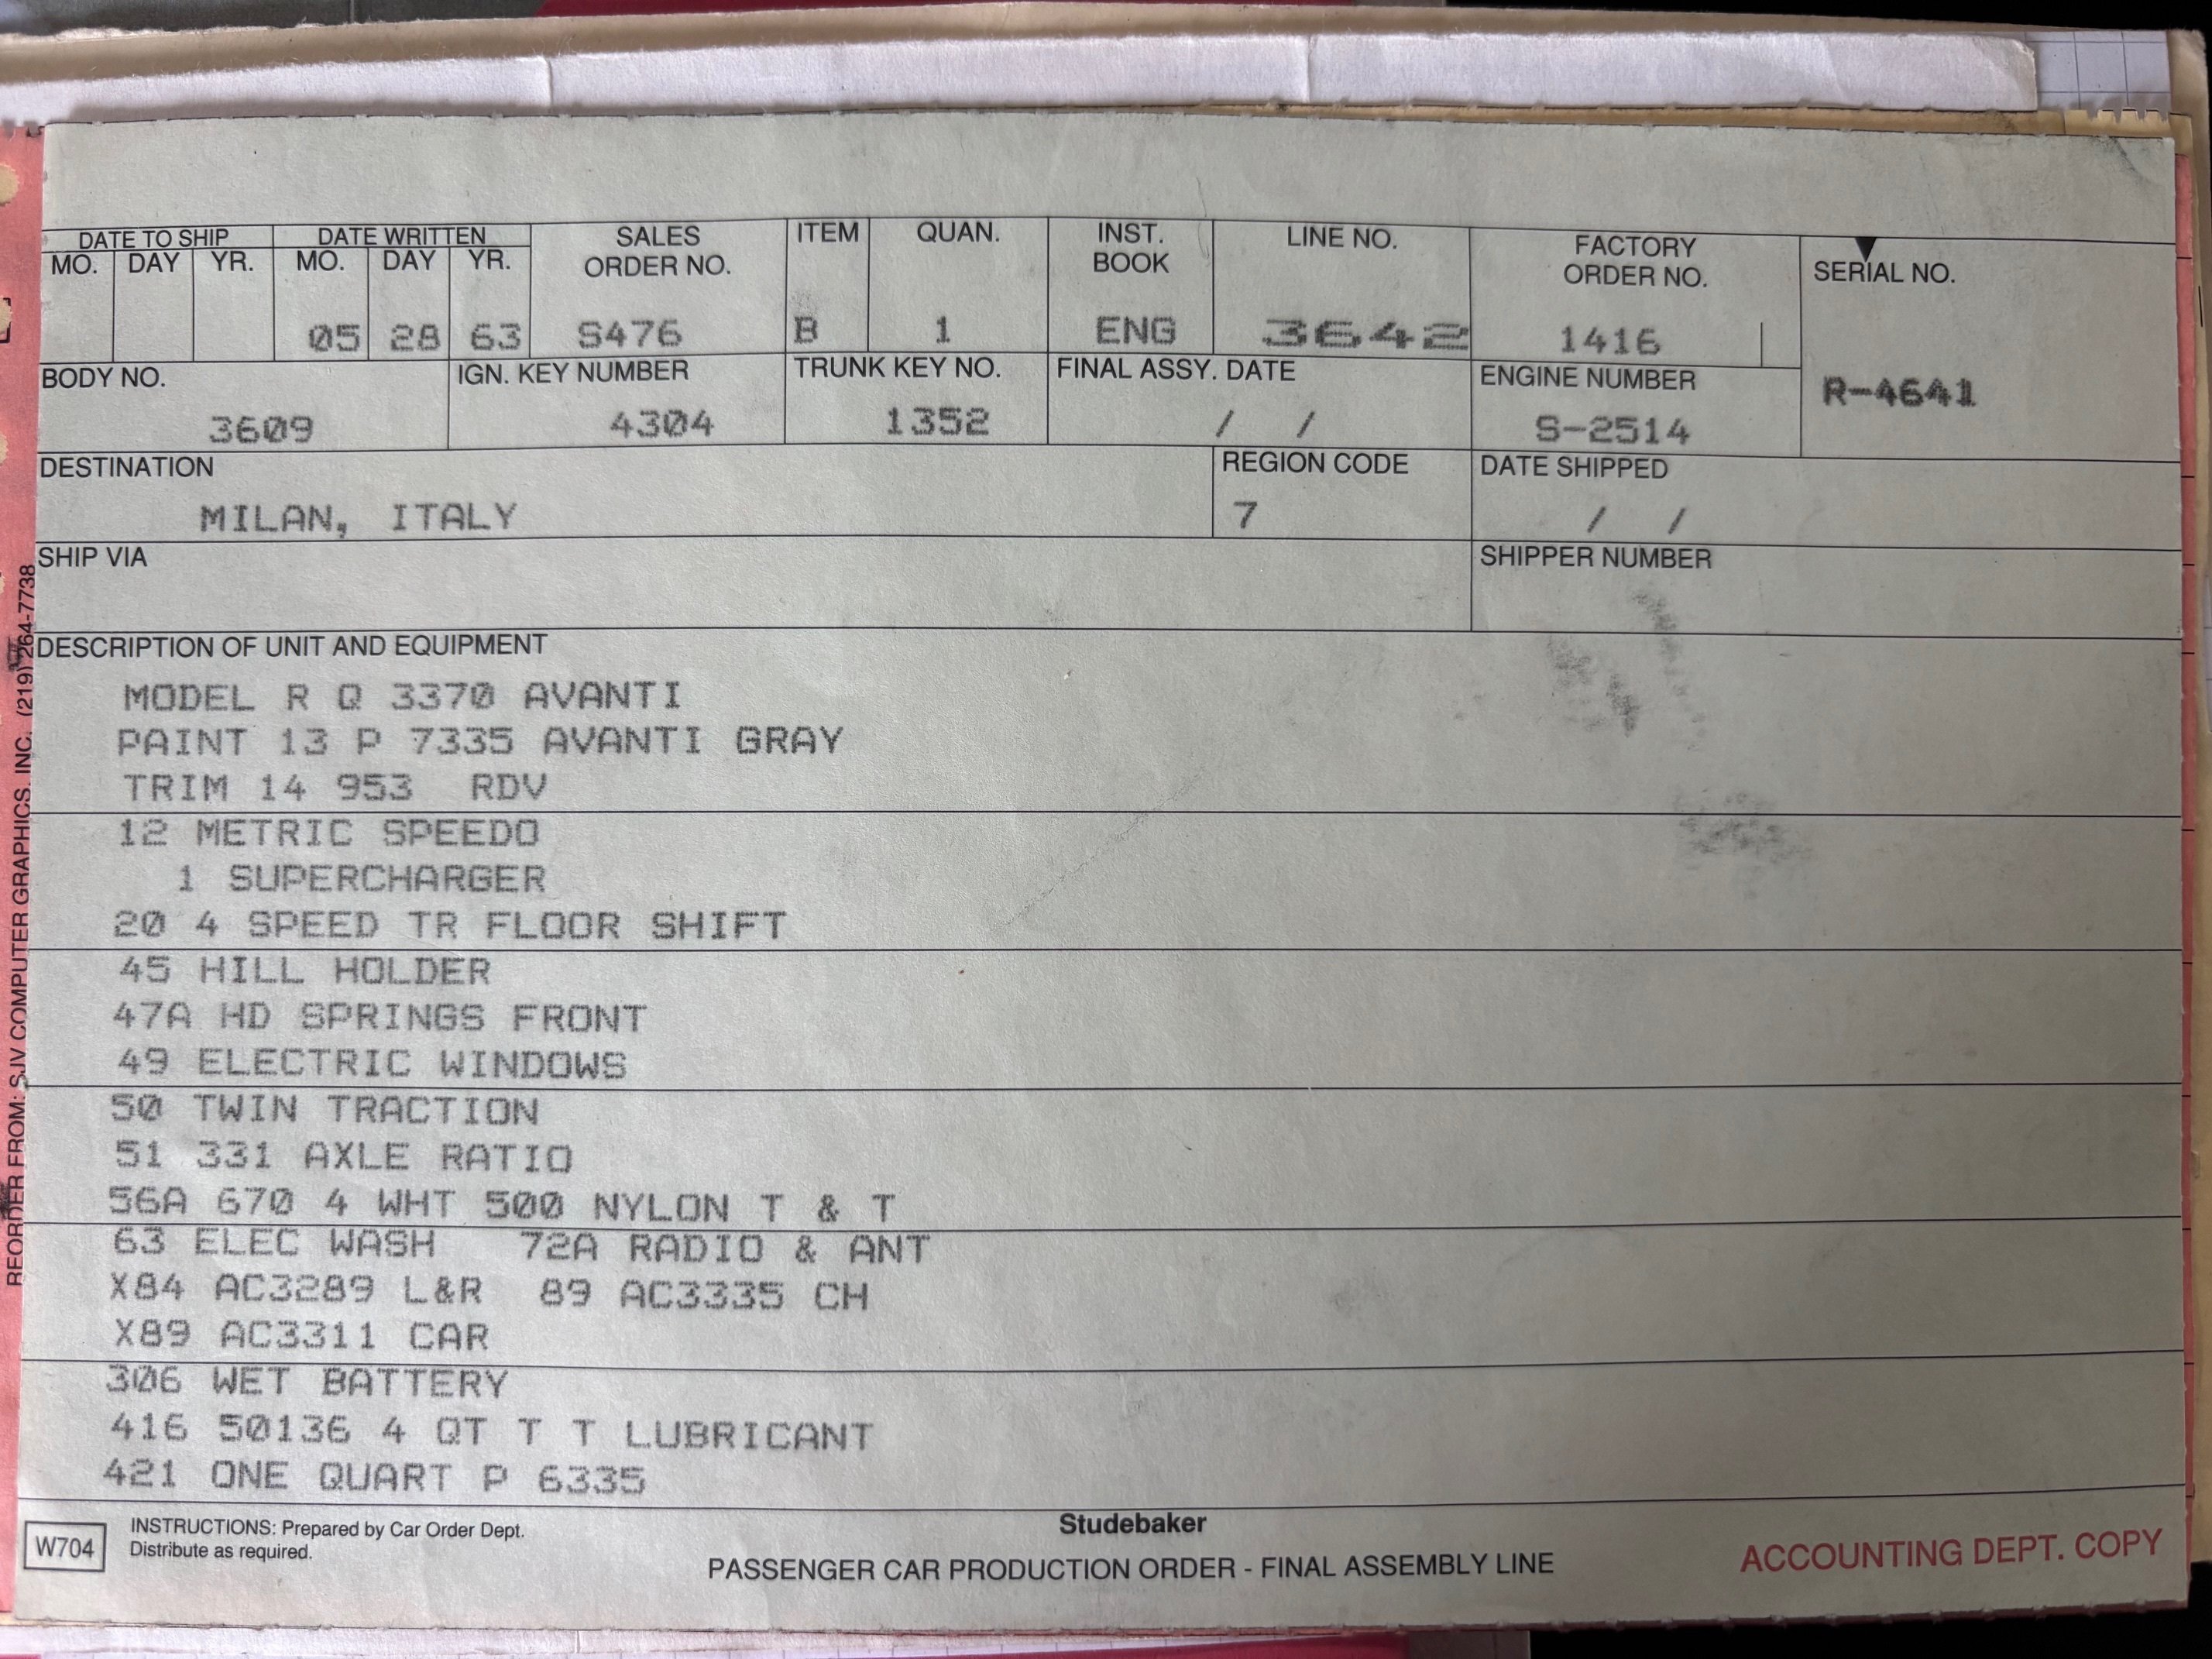 DATE TO SHIP DATE WRITTEN SALES ORDER NO. ITEM QUAN. INST. BOOK LINE NO. FACTORY ORDER NO. SERIAL NO.
MO. DAY YR. MO. DAY YR.
05 28 63 S476 B 1 ENG 3642 1416
BODY NO. IGN. KEY NUMBER TRUNK KEY NO. FINAL ASSY. DATE ENGINE NUMBER
R-4641
3609 4304 1352 / / S-2514
DESTINATION REGION CODE DATE SHIPPED
MILAN, ITALY 7 / /
SHIP VIA SHIPPER NUMBER
DESCRIPTION OF UNIT AND EQUIPMENT
MODEL R Q 3370 AVANTI
PAINT 13 P 7335 AVANTI GRAY
TRIM 14 953 RDV
12 METRIC SPEEDO
1 SUPERCHARGER
20 4 SPEED TR FLOOR SHIFT
45 HILL HOLDER
47A HD SPRINGS FRONT
49 ELECTRIC WINDOWS
50 TWIN TRACTION
51 331 AXLE RATIO
56A 670 4 WHT 500 NYLON T & T
63 ELEC WASH 72A RADIO & ANT
X84 AC3289 L&R 89 AC3335 CH
X89 AC3311 CAR
306 WET BATTERY
416 50136 4 QT T T LUBRICANT
421 ONE QUART P 6335
W704
INSTRUCTIONS: Prepared by Car Order Dept.
Distribute as required.
Studebaker
PASSENGER CAR PRODUCTION ORDER - FINAL ASSEMBLY LINE
ACCOUNTING DEPT. COPY
REORDER FROM: SJV COMPUTER GRAPHICS, INC. (219) 264-7738